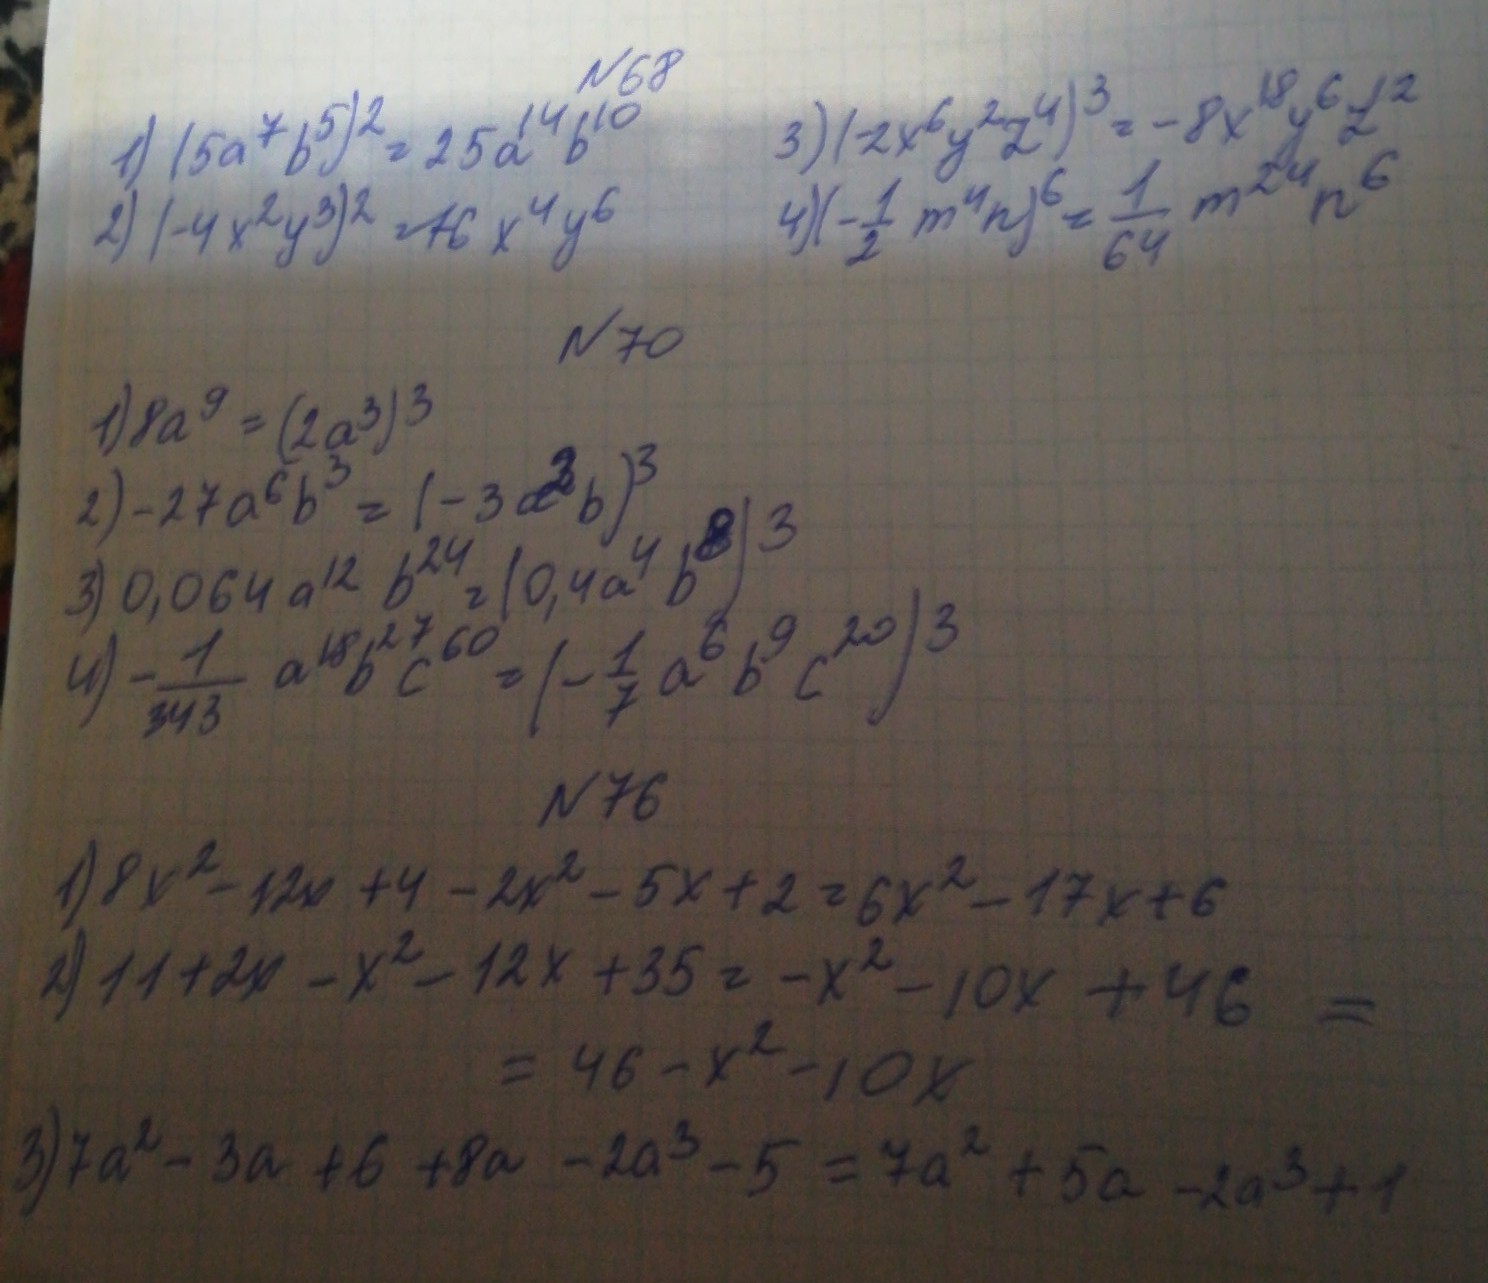 N68
1) (5a⁷b⁵)² = 25a¹⁴b¹⁰
2) (-4x²y³)² = 16x⁴y⁶
3) (-2x⁶y²z⁴)³ = -8x¹⁸y⁶z¹²
4) (-1/2 m⁴n)⁶ = 1/64 m²⁴n⁶
N70
1) 8a⁹ = (2a³)³
2) -27a⁶b³ = (-3a²b)³
3) 0,064a¹²b²⁴ = (0,4a⁴b⁸)³
4) -1/343 a¹⁸b²⁷c⁶⁰ = (-1/7 a⁶b⁹c²⁰)³
N76
1) 8x² - 12x + 4 - 2x² - 5x + 2 = 6x² - 17x + 6
2) 11 + 2x - x² - 12x + 35 = -x² - 10x + 46 =
= 46 - x² - 10x
3) 7a² - 3a + 6 + 8a - 2a³ - 5 = 7a² + 5a - 2a³ + 1